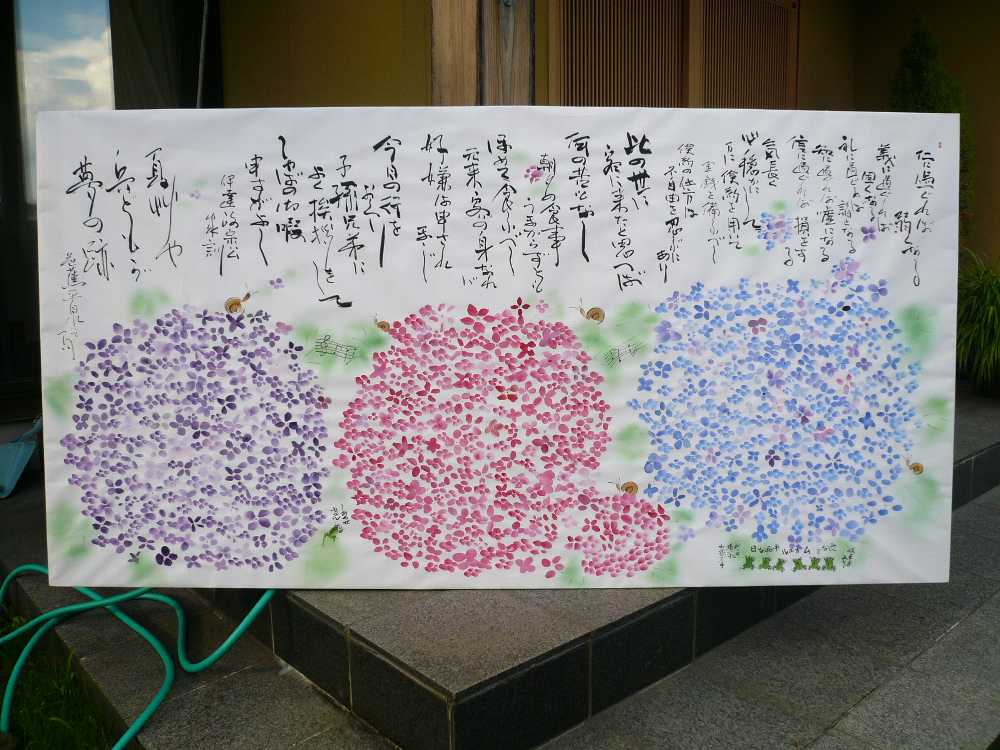 仁に過ぐれば
弱くなる
義に過ぐれば
固くなる
礼に過ぐれば
諂となる
智に過ぐれば
になる
信に過ぐれば損をする
気長く
心穏かにして
万に倹約を用いて
金銭を備ふべし
倹約の仕方は
不自由を忍ぶにあり
此の世に
客に来たと思へば
何の苦もなし
朝夕の食事
うまからずとも
ほめて食ふべし
元来客の身なれば
好嫌は申されまじ
今日の行を
おくり
子孫兄弟に
よく挨拶をして
しゃばの御暇
申すがよし
伊達政宗公
家訓
夏艸や
兵どもが
夢の跡
芭蕉